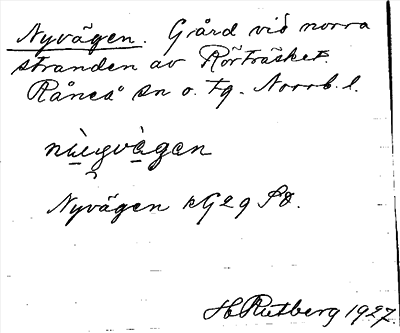 Nyvägen. Gård vid norra
stranden av Rörträsket.
Råneå sn o. tg. Norrb. l.
Nyvägen
H Rutberg 1927.